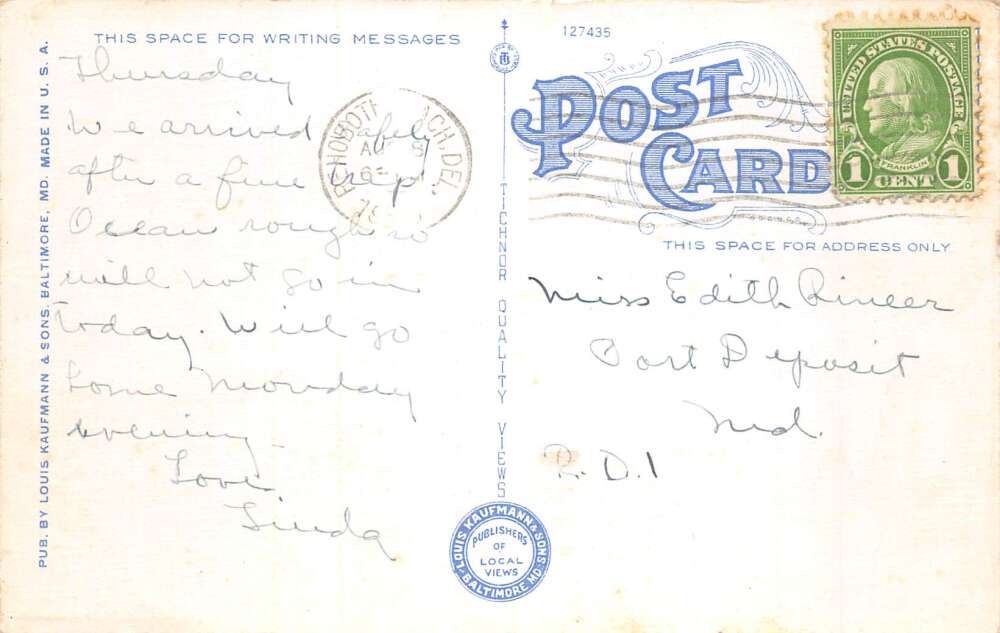 THIS SPACE FOR WRITING MESSAGES
Thursday
We arrived safely
after a fine trip.
Ocean rough so
will not go in
today. Will go
home Monday
evening
Love,
Linda
PUB. BY LOUIS KAUFMANN & SONS, BALTIMORE, MD. MADE IN U. S. A.
TICHNOR QUALITY VIEWS
127435
POST
CARD
REHOBOTH
CH, DEL.
AU
UNITED STATES POSTAGE
FRANKLIN
1 CENT 1
THIS SPACE FOR ADDRESS ONLY
Miss Edith Rineer
Port Deposit
Md.
R. D. 1
LOUIS KAUFMANN & SONS
PUBLISHERS
OF
LOCAL
VIEWS
BALTIMORE MD.